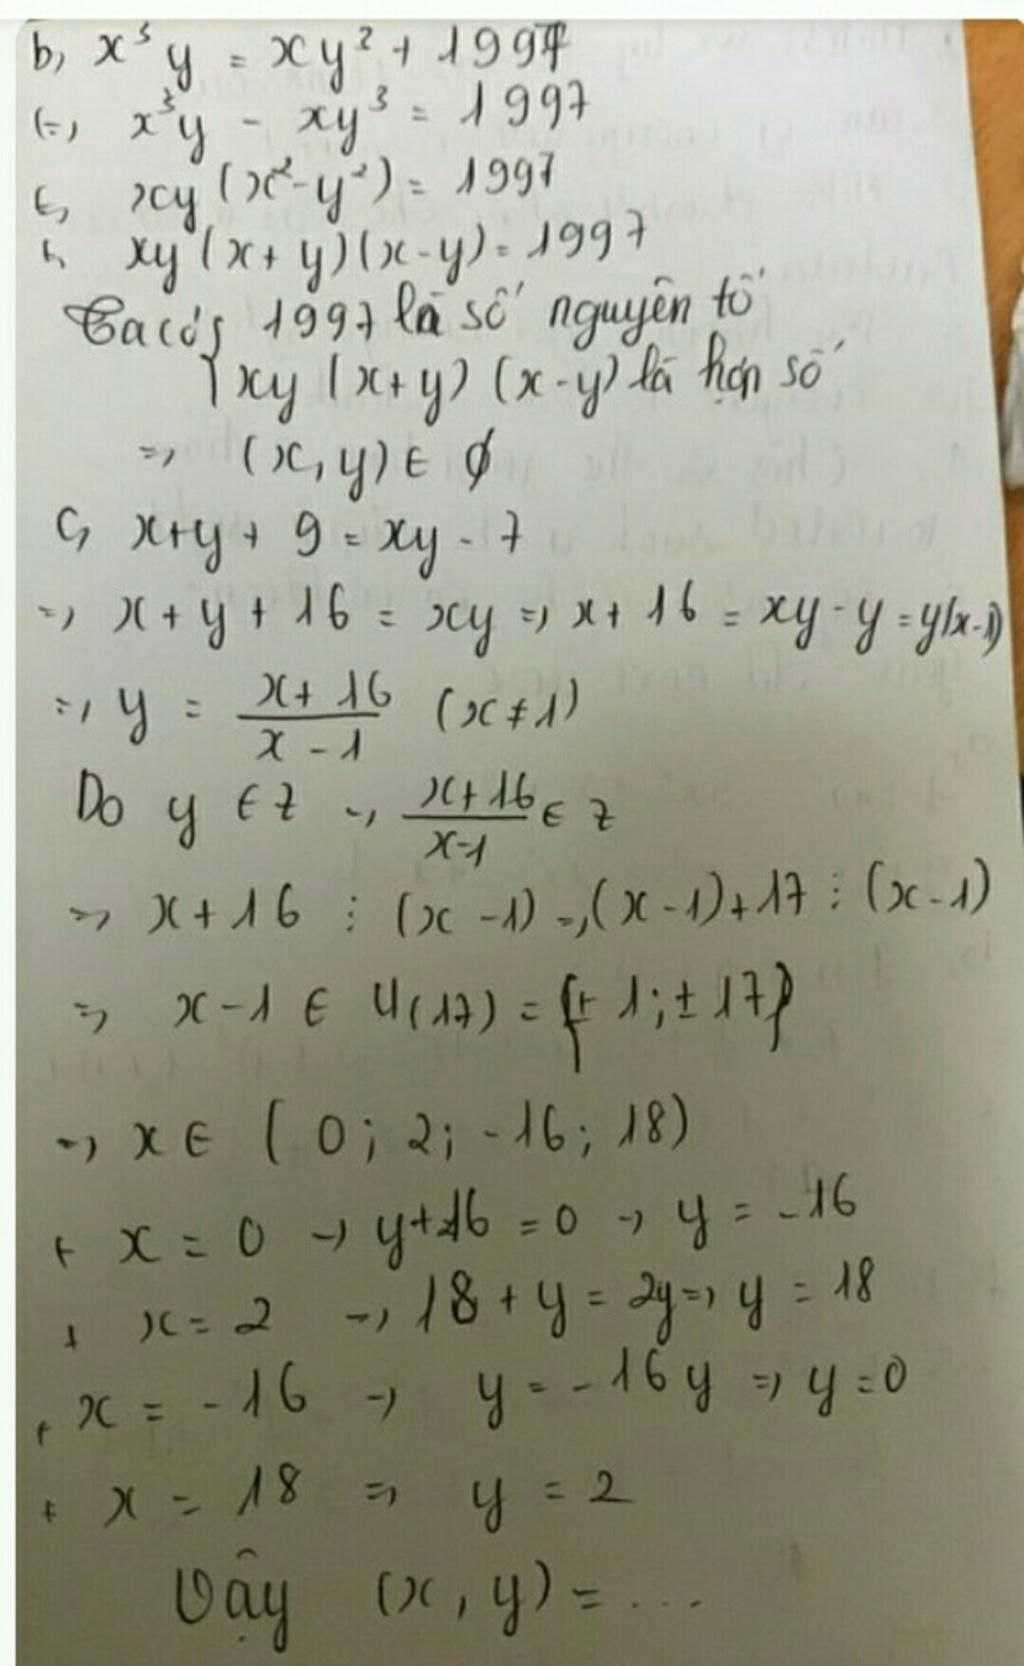 b, x³y = xy² + 1997
(=, x³y - xy³ = 1997
(=, xy (x²-y²) = 1997
(= xy (x+y)(x-y) = 1997
Ta có { 1997 là số nguyên tố
xy (x+y) (x-y) là hợp số
=> (x,y) ∈ ∅
c, x+y + 9 = xy - 7
=> x + y + 16 = xy => x + 16 = xy - y = y(x-1)
=> y = (x+16)/(x-1) (x≠1)
Do y ∈ Z -> (x+16)/(x-1) ∈ Z
=> x+16 ⋮ (x-1) => (x-1)+17 ⋮ (x-1)
=> x-1 ∈ Ư(17) = {± 1; ± 17}
=> x ∈ ( 0; 2; -16; 18)
+ x = 0 -> y+16 = 0 -> y = -16
+ x = 2 -> 18 + y = 2y => y = 18
+ x = -16 -> y = -16y => y = 0
+ x = 18 => y = 2
Vậy (x, y) = ...